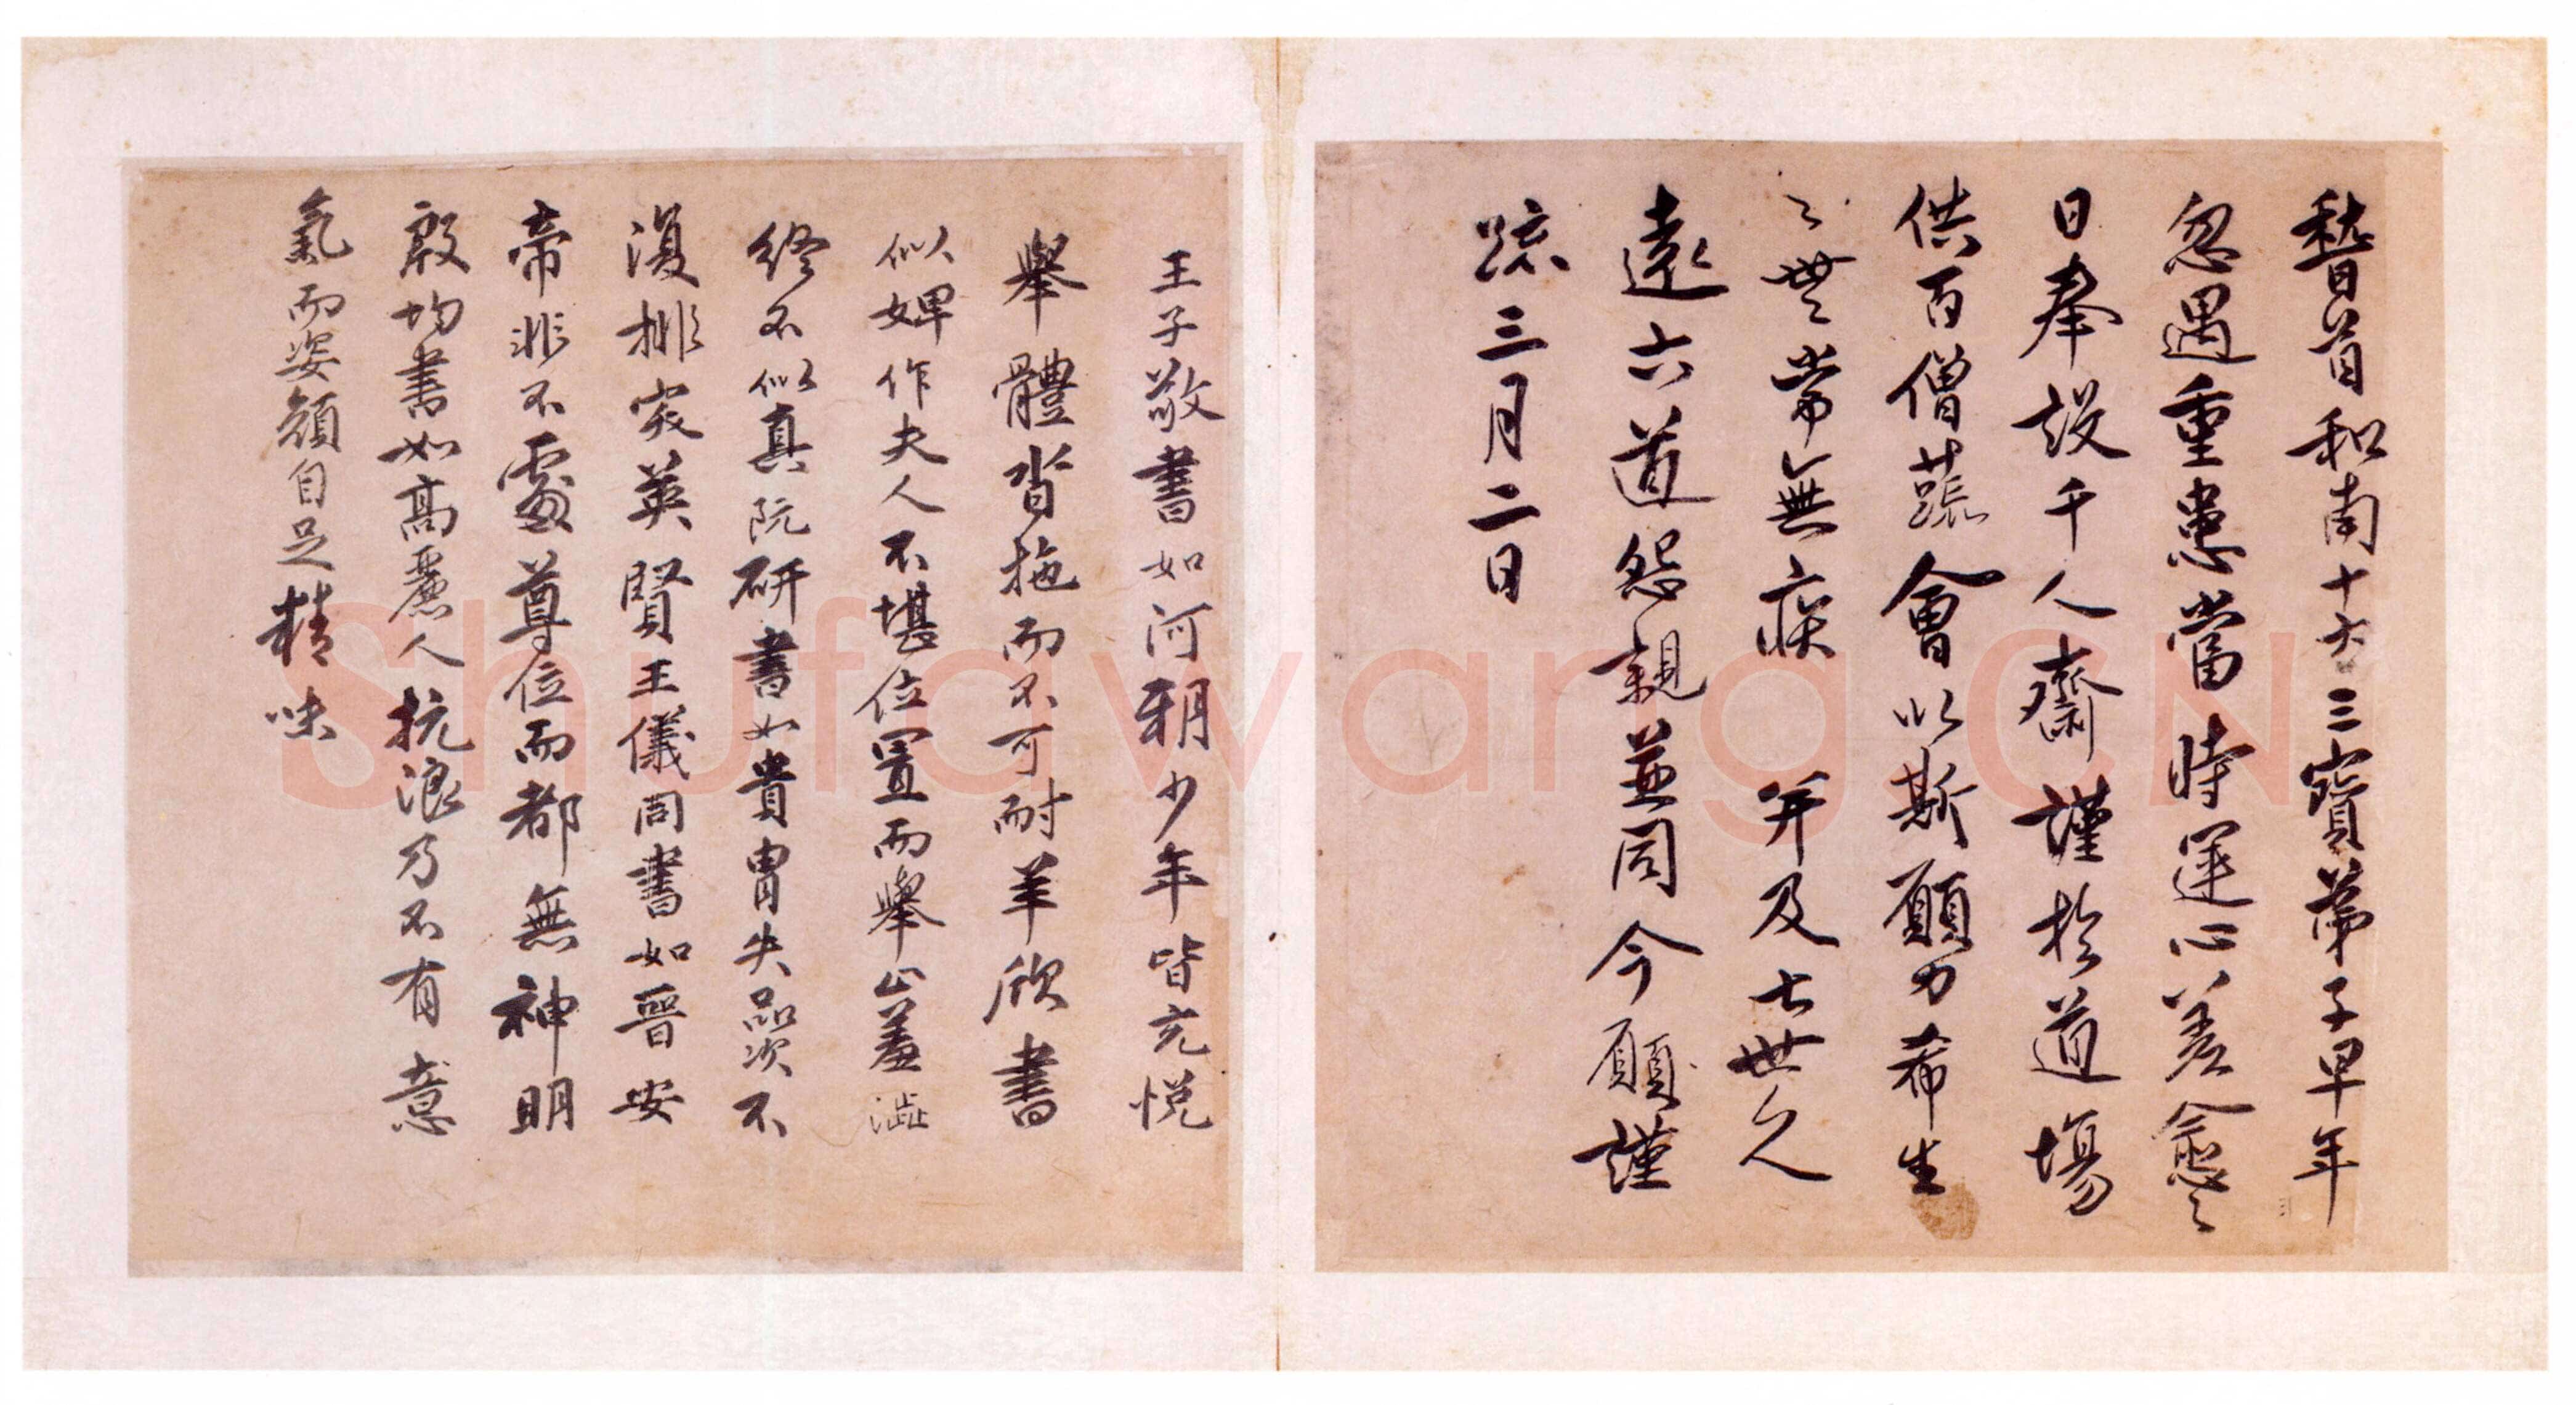 稽首和南十方三寶弟子早年
忽遇重患當時運心差愈之
日奉設千人齋謹於道場
供百僧蔬會以斯願力希生
々世々常無疾并及七世久
遠六道怨親並同今願謹
疏三月二日
王子敬書如河朔少年皆充悅
舉體沓拖而不可耐羊欣書
似婢作夫人不堪位置而舉止羞澁
終不似真阮研書如貴胄失品次不
復排突英賢王儀同書如晉安
帝非不處尊位而都無神明
殷均書如高麗人抗浪乃不有意
氣而姿顏自足精味
Shufawang.CN